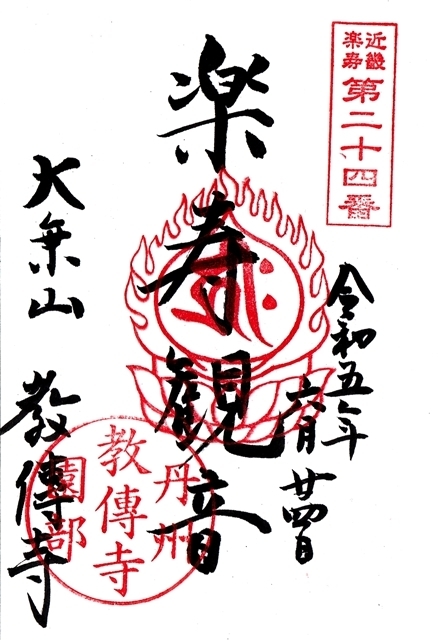 近畿
楽寿
第二十四番
令和五年
六月廿四日
楽寿観音
大乗山 教傳寺
丹州
教傳寺
園部